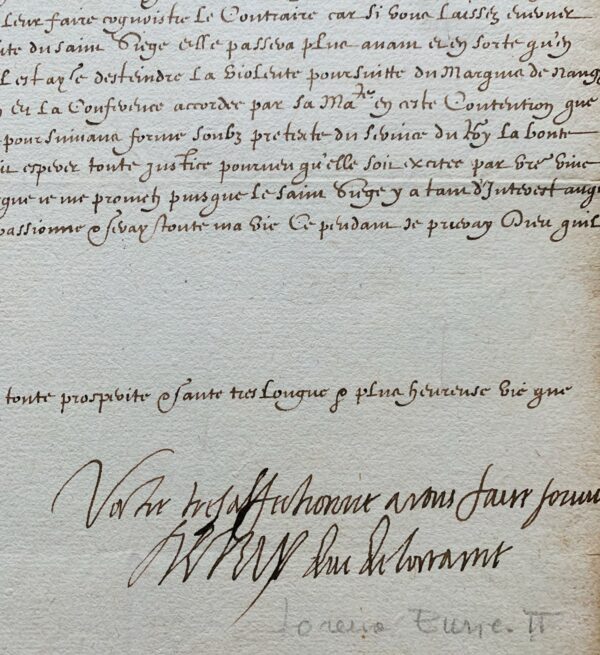 Leur faire cognoistre Le Contraire car si vous Laissez enerver
du saint Siege elle passera plus avant et en sorte qu'en
est aysé d'esteindre La violente poursuitte du Marquis de
et La Conference accordee par sa Ma.te en ceste Contention que
poursuivans forme soubz pretexte du service du Roy La bonte
esperer toute Justice pourveu qu'elle soit excitee par vre vive
que ie me prometz puisque Le saint Siege y a tant d'Interest
passionne & seray toute ma vie Ce pendant Je prieray Dieu quil
toute prosperite & sante tres Longue & plus heureuse vie que
Vostre tresaffectionné a vous faire
Henry duc de Lorraine
II